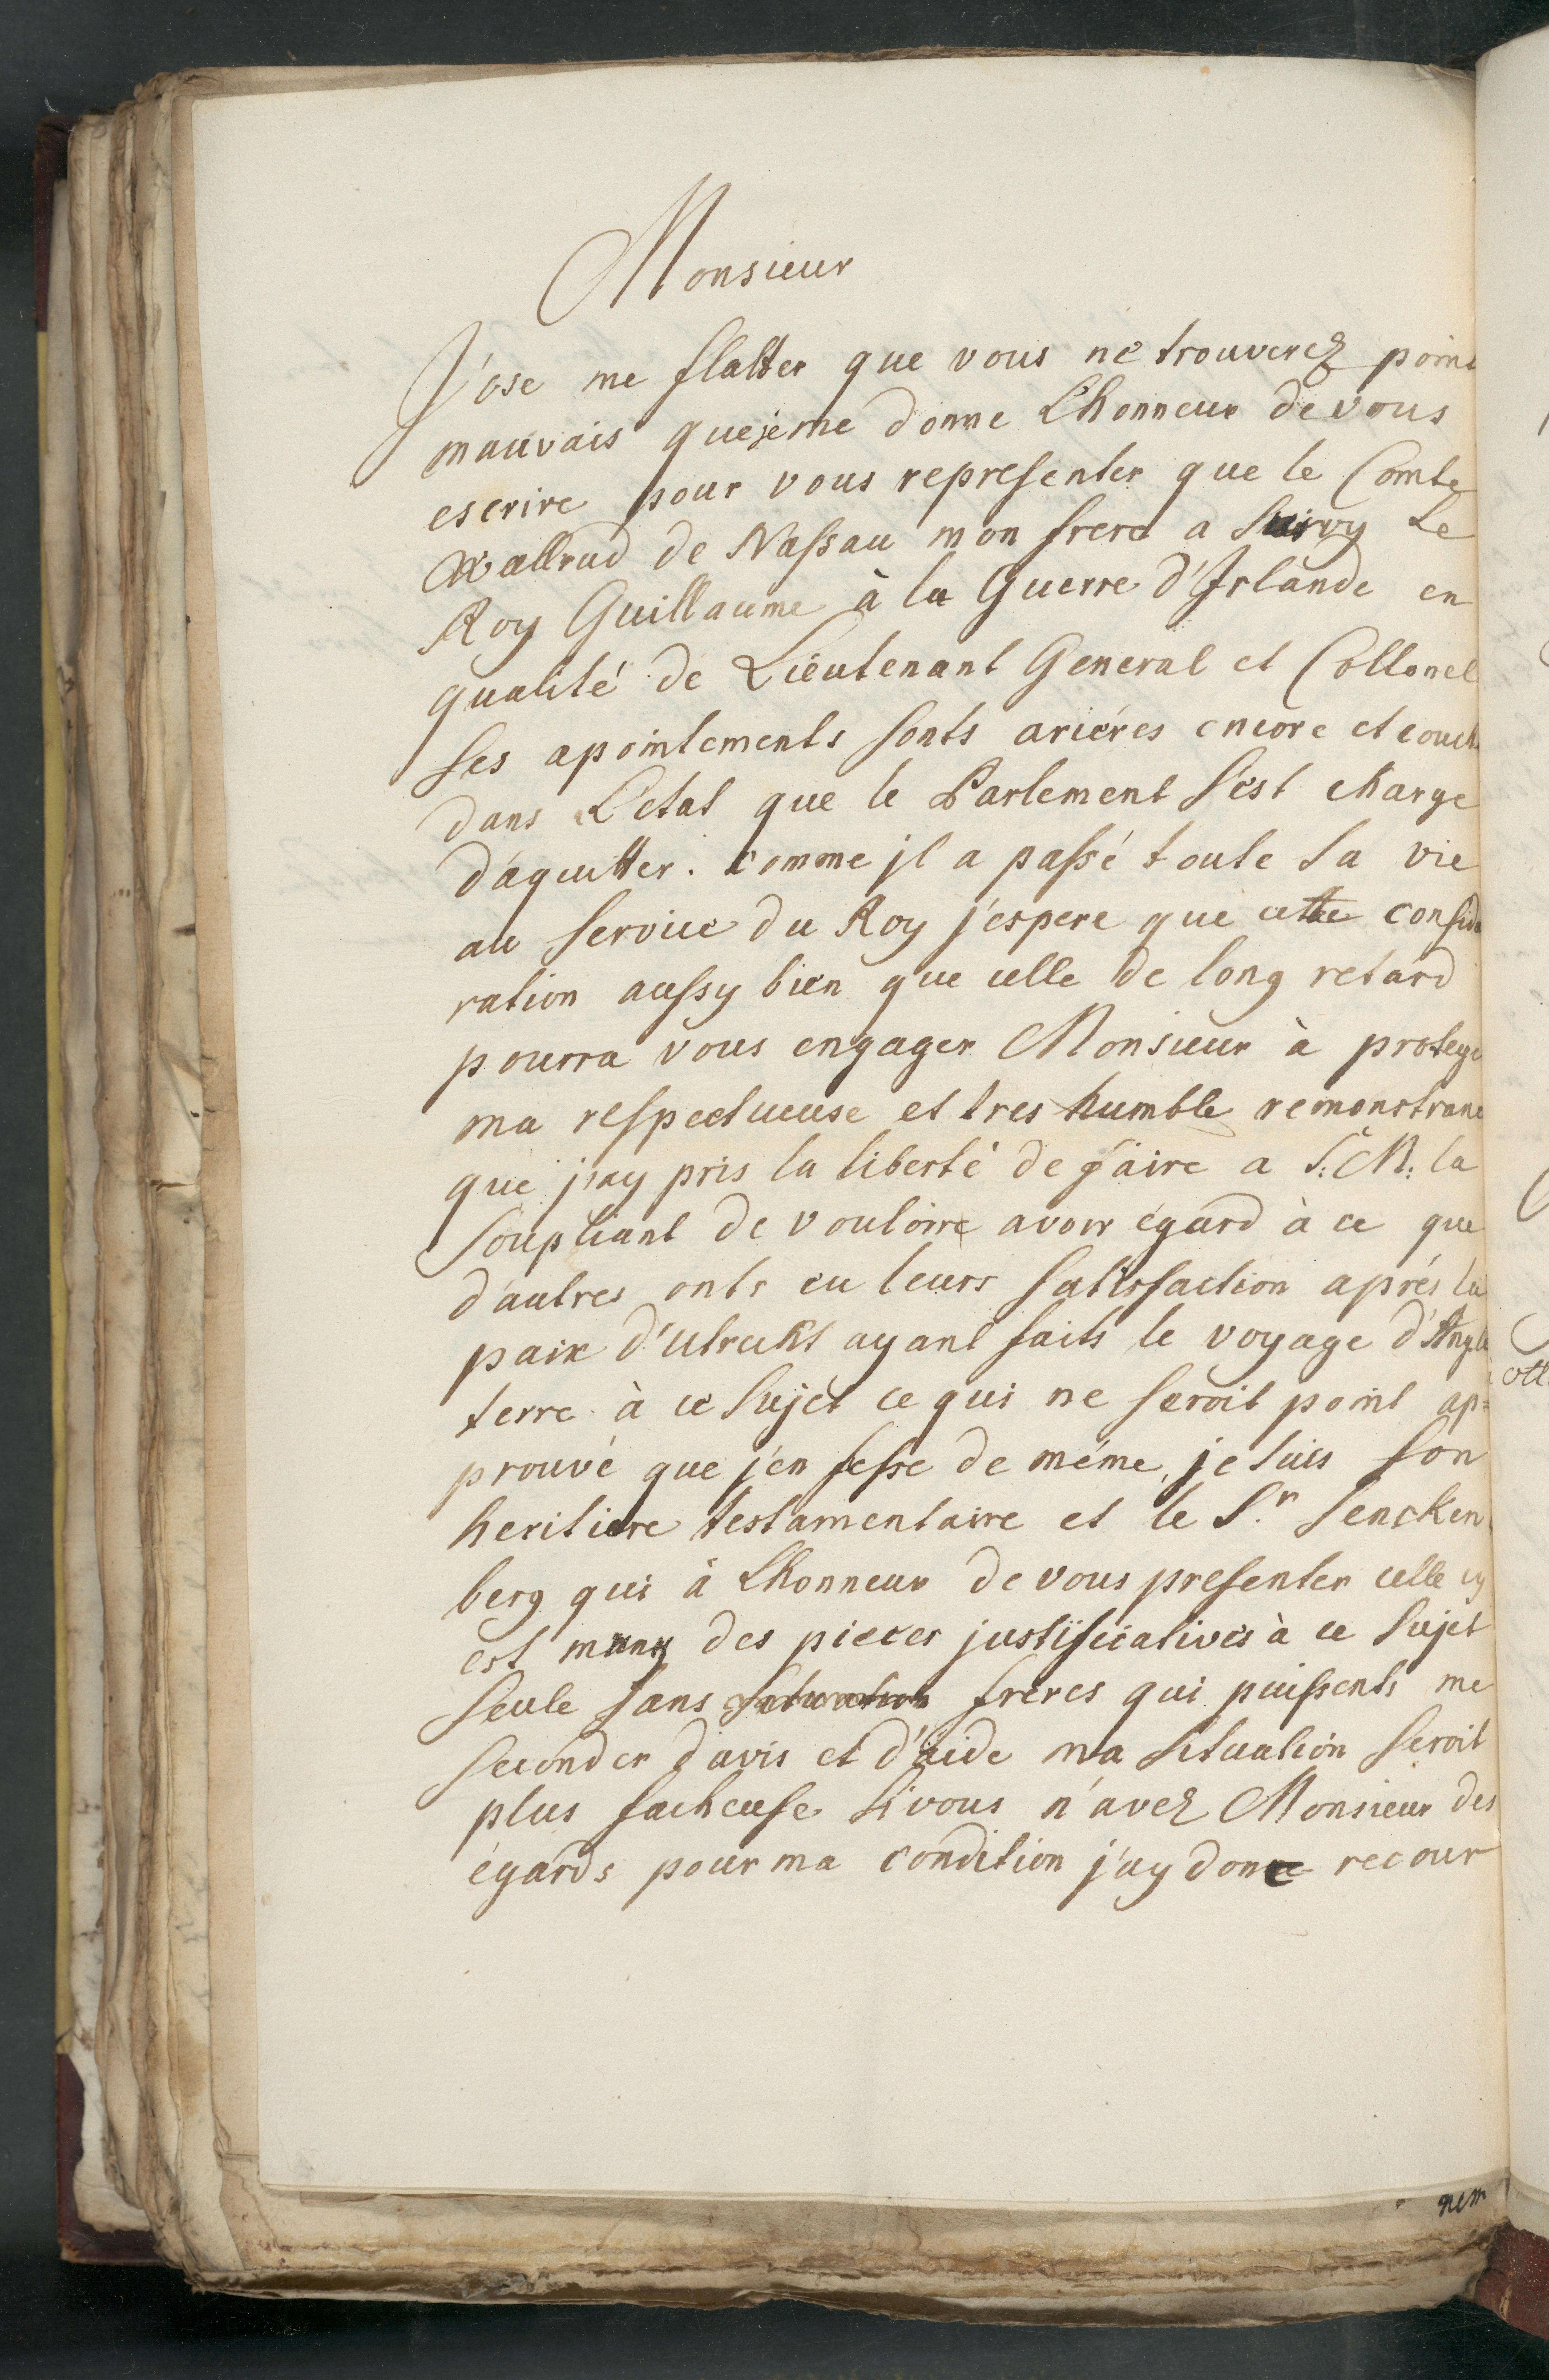 Monsieur
J'ose me flatter que vous ne trouverez point
mauvais que je me donne L'honneur de vous
escrire pour vous representer que le Comte
Wallrad de Nassau mon frere a suivy Le
Roy Guillaume à la Guerre d'Irlande en
qualité de Lieutenant General et Collonel
ses apointements sonts ariéres encore et couch
dans L'etat que le Parlement s'est charge
d'aquitter. comme jl a passé toute sa vie
au service du Roy j'espere que cette consid
ration aussy bien que celle de long retard
pourra vous engager Monsieur à protege
ma respectueuse et tres humble remonstranc
que j'ay pris la liberté de faire a S: M: la
soupliant de vouloire avoir égard à ce que
d'autres onts eu leurs satisfaction aprés la
paix d'Utreckt ayant faits le voyage d'Angle
terre à ce sujet ce qui ne seroit point ap=
prouvé que j'en fesse de méme, je suis son
heritiere testamentaire et le S.r Sencken
berg qui à L'honneur de vous presenter celle cy
est muny des pieces justificatives à ce sujet
seule sans frères qui puissents me
seconder d'avis et d'aide ma situation seroit
plus facheuse si vous n'avez Monsieur des
égards pour ma condition j'ay donc recour